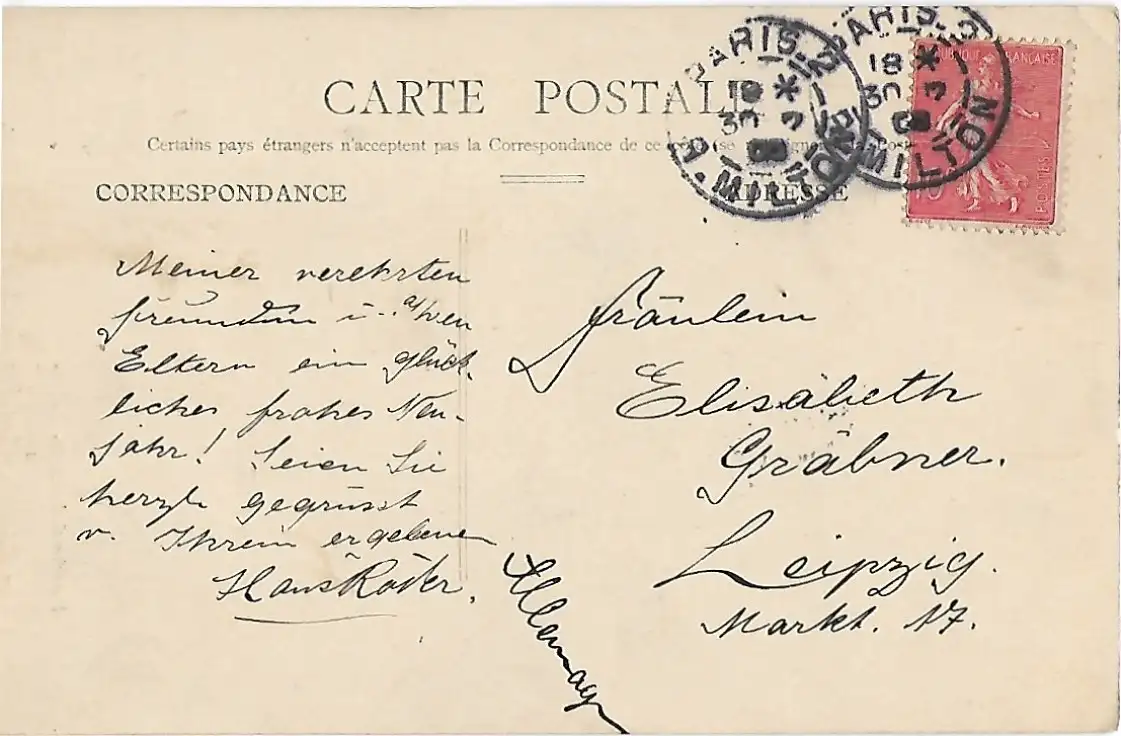 CARTE POSTALE
Certains pays étrangers n'acceptent pas la Correspondance de ce côté (se
CORRESPONDANCE
ADRESSE
PARIS-2
18 *
30
R. MILTON
PARIS-2
18 *
30
MILTON
FRANÇAISE
10
POSTES
Meiner verehrten
Freundin u. a/
Eltern ein glück-
liches frohes Neu-
jahr! Seien Sie
herzl. gegrüsst
v. Ihrem ergebenen
Hans
Fräulein
Elisabeth
Gräbner.
Leipzig.
Markt. 17.
Allemagne